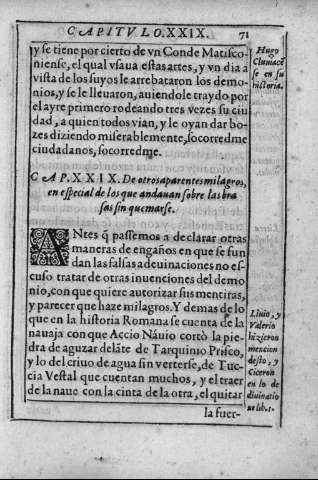 CAPITVLO.XXIX. 71
y se tiene por cierto de vn Conde Matisco-
niense, el qual vsaua estas artes, y vn dia a
vista de los suyos le arrebataron los demo-
nios, y se le lleuaron, auiendole traydo por
el ayre primero rodeando tres vezes su ciu
dad, a quien todos vian, y le oyan dar bo-
zes diziendo miserablemente, socorredme
ciudadanos, socorredme.
Hugo
Cluniacẽ
se en su
historia.
CAP. XXIX. De otros aparentes milagros,
en especial de los que andauan sobre las bra
sas sin quemarse.
ANtes q̃ passemos a declarar otras
maneras de engaños en que se fun
dan las falsas adeuinaciones no es-
cuso tratar de otras inuenciones del demo
nio, con que quiere autorizar sus mentiras,
y parecer que haze milagros. Y demas de lo
que en la historia Romana se cuenta de la
nauaja con que Accio Náuio cortò la pie-
dra de aguzar delãte de Tarquinio Prisco,
y lo del criuo de agua sin verterse, de Tuc-
cia Vestal que cuentan muchos, y el traer
de la naue con la cinta de la otra, el quitar
Liuio, y
Valerio
hizieron
mencion
desto, y
Ciceron
en lo de
diuinatio
ne lib. 1.
la fuer-